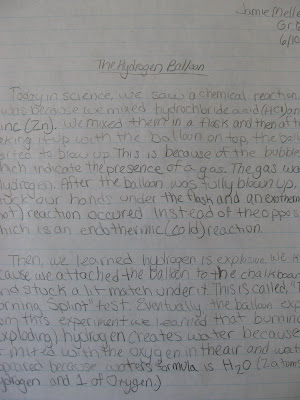 Jamie Melle
Gr.
6/10
The Hydrogen Balloon
Today in science, we saw a chemical reaction.
was because we mixed hydrochloride acid (HCl) an
inc (Zn). We mixed them in a flask and then after
aking it up with the balloon on top, the ba
arted to blow up. This is because of the bubbles
hich indicate the presence of a gas. The gas wa
ydrogen. After the balloon was fully blown up,
uck our hands under the flask and an exotherm
hot) reaction occured instead of the oppos
hich is an endothermic (cold) reaction.
Then, we learned hydrogen is explosive. We k
cause we attached the balloon to the chalkboar
nd stuck a lit match under it. This is called, "T
urning Splint" test. Eventually, the balloon exp
om this experiment we learned that burnin
exploding) hydrogen creates water because
mixed with the oxygen in the air and wate
ppeared because water's formula is H2O (2 atoms
ydrogen and 1 of Oxygen.)